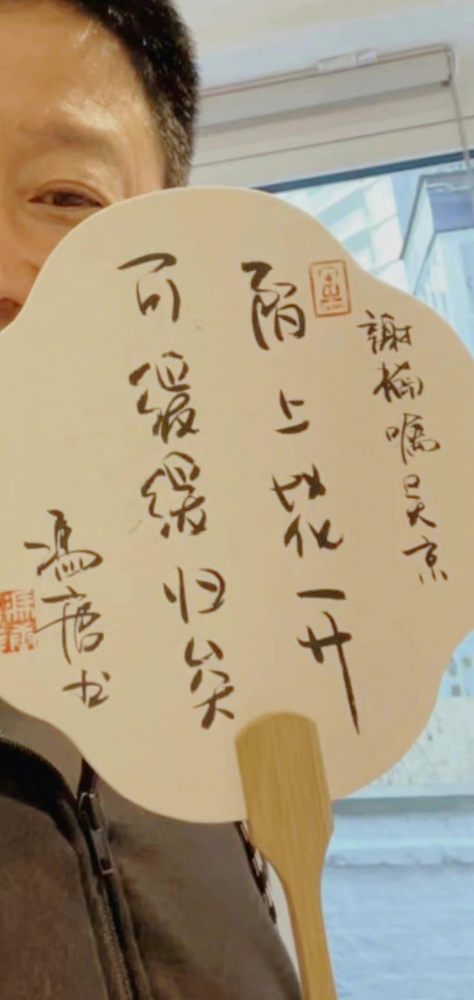 謝楠嘱吴京
陌上花开
可缓缓归矣
冯唐书